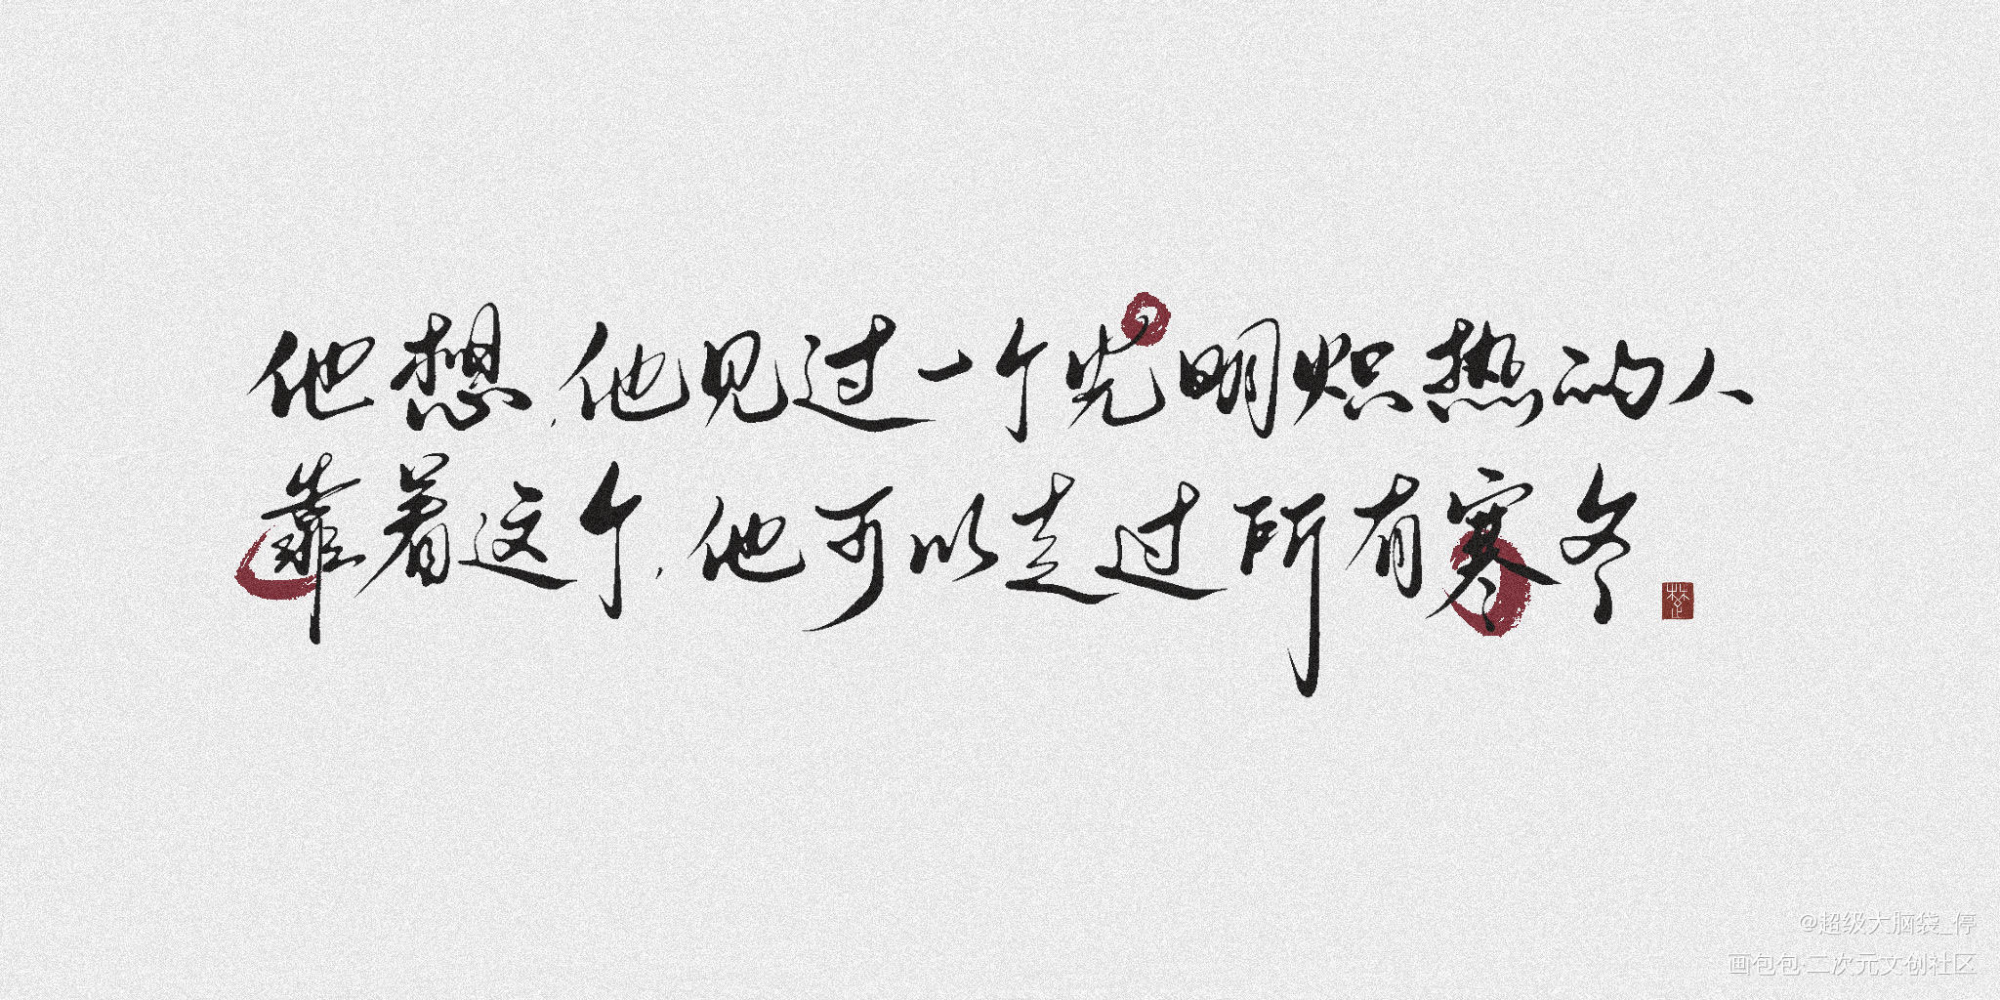 他想,他见过一个光明炽热的人
靠着这个,他可以走过所有寒冬
@超级大脑袋_停
画包包·二次元文创社区